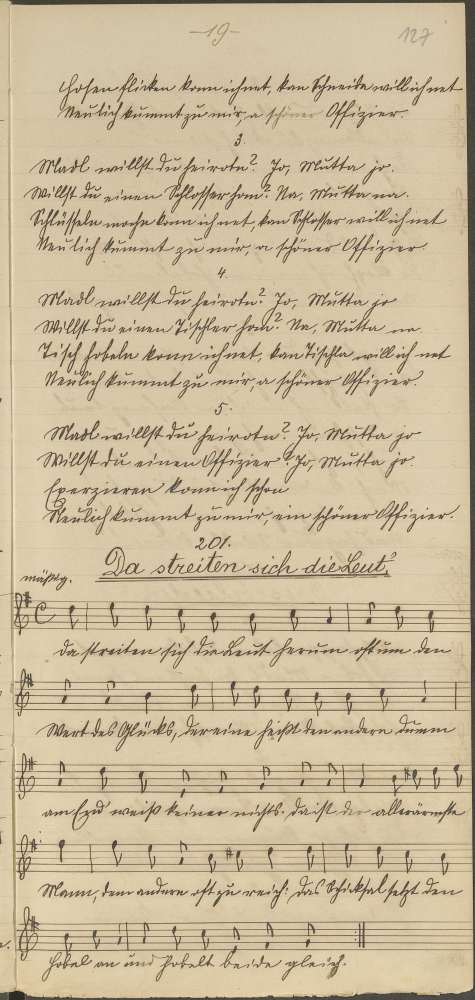 -19-
127
Hosen flicken kann ich net, kan Schneida will ich net
Neulich kummt zu mir, a schöner Offizier.
3.
Madl willst du heirotn? Jo, Mutta jo.
Willst du einen Schlosser ham? Na, Mutta na.
Schlüsseln mache kann ich net, kan Schlosser will ich net
Neulich kummt zu mir, a schöner Offizier.
4.
Madl willst du heirotn? Jo, Mutta jo
Willst du einen Tischler ham? Na, Mutta na.
Tisch hobeln kann ich net, kan Tischla will ich net
Neulich kummt zu mir, a schöner Offizier.
5.
Madl willst du heirotn? Jo, Mutta jo
Willst du einen Offizier? Jo, Mutta jo.
Exerzieren kann ich schon
Neulich kummt zu mir, ein schöner Offizier.
201.
Da streiten sich die Leut',
mäßig.
Da streiten sich die Leut herum oft um den
Wert des Glücks, der eine heißt den andern dumm
am End weiß keiner nichts. Da ist der allerärmste
Mann, dem andern oft zu reich: das Schicksal setzt den
Hobel an und hobelt beide gleich.